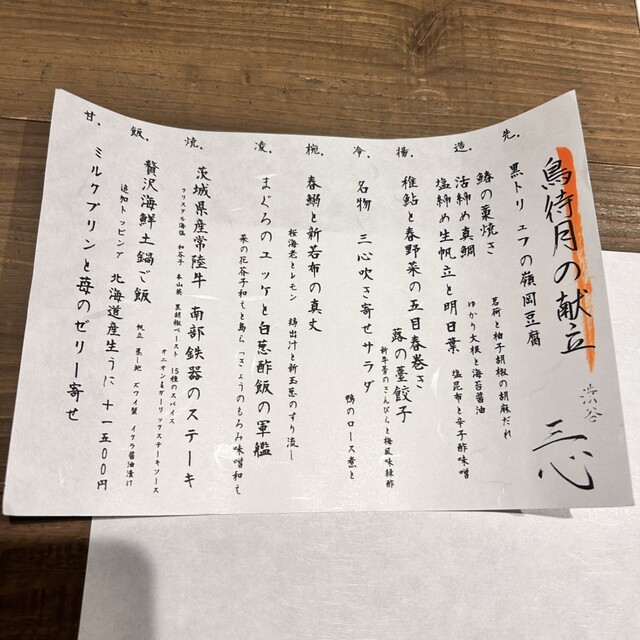 鳥待月の献立
渋谷 三心
先、
黒トリュフの嶺岡豆腐
茗荷と柚子胡椒の胡麻だれ
造、
鰆の藁焼き
活締め真鯛
ゆかり大根と海苔醤油
塩締め生帆立と明日葉
塩昆布と辛子酢味噌
揚、
稚鮎と春野菜の五目春巻き
蕗の薹餃子
新牛蒡のきんぴらと梅風味緑酢
冷、
名物 三心吹き寄せサラダ
鴨のロース煮と
椀、
春鰯と新若布の真丈
桜海老とレモン 鶏出汁と新玉葱のすり流し
凌、
まぐろのユッケと白葱酢飯の軍艦
菜の花芥子和えと島らっきょうのもろみ味噌和え
焼、
茨城県産常陸牛 南部鉄器のステーキ
クリスタル海塩 和芥子 本山葵 黒胡椒ペースト 15種のスパイス
オニオン&ガーリックステーキソース
飯、
贅沢海鮮土鍋ご飯
帆立 蒸し鮑 ズワイ蟹 イクラ醤油漬け
追加トッピング 北海道産生うに 十一五〇〇円
甘、
ミルクプリンと苺のゼリー寄せ